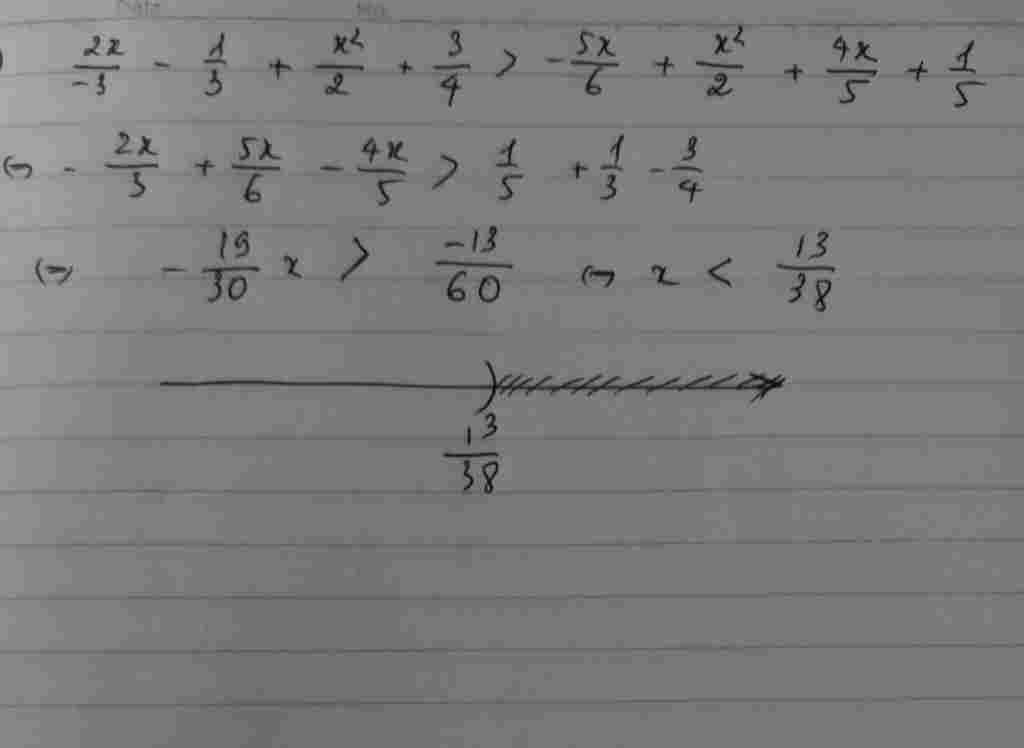 ) 2x/-3 - 1/3 + x²/2 + 3/4 > - 5x/6 + x²/2 + 4x/5 + 1/5
⇔ - 2x/3 + 5x/6 - 4x/5 > 1/5 + 1/3 - 3/4
⇔ - 19/30 x > -13/60 ⇔ x < 13/38
)
13/38